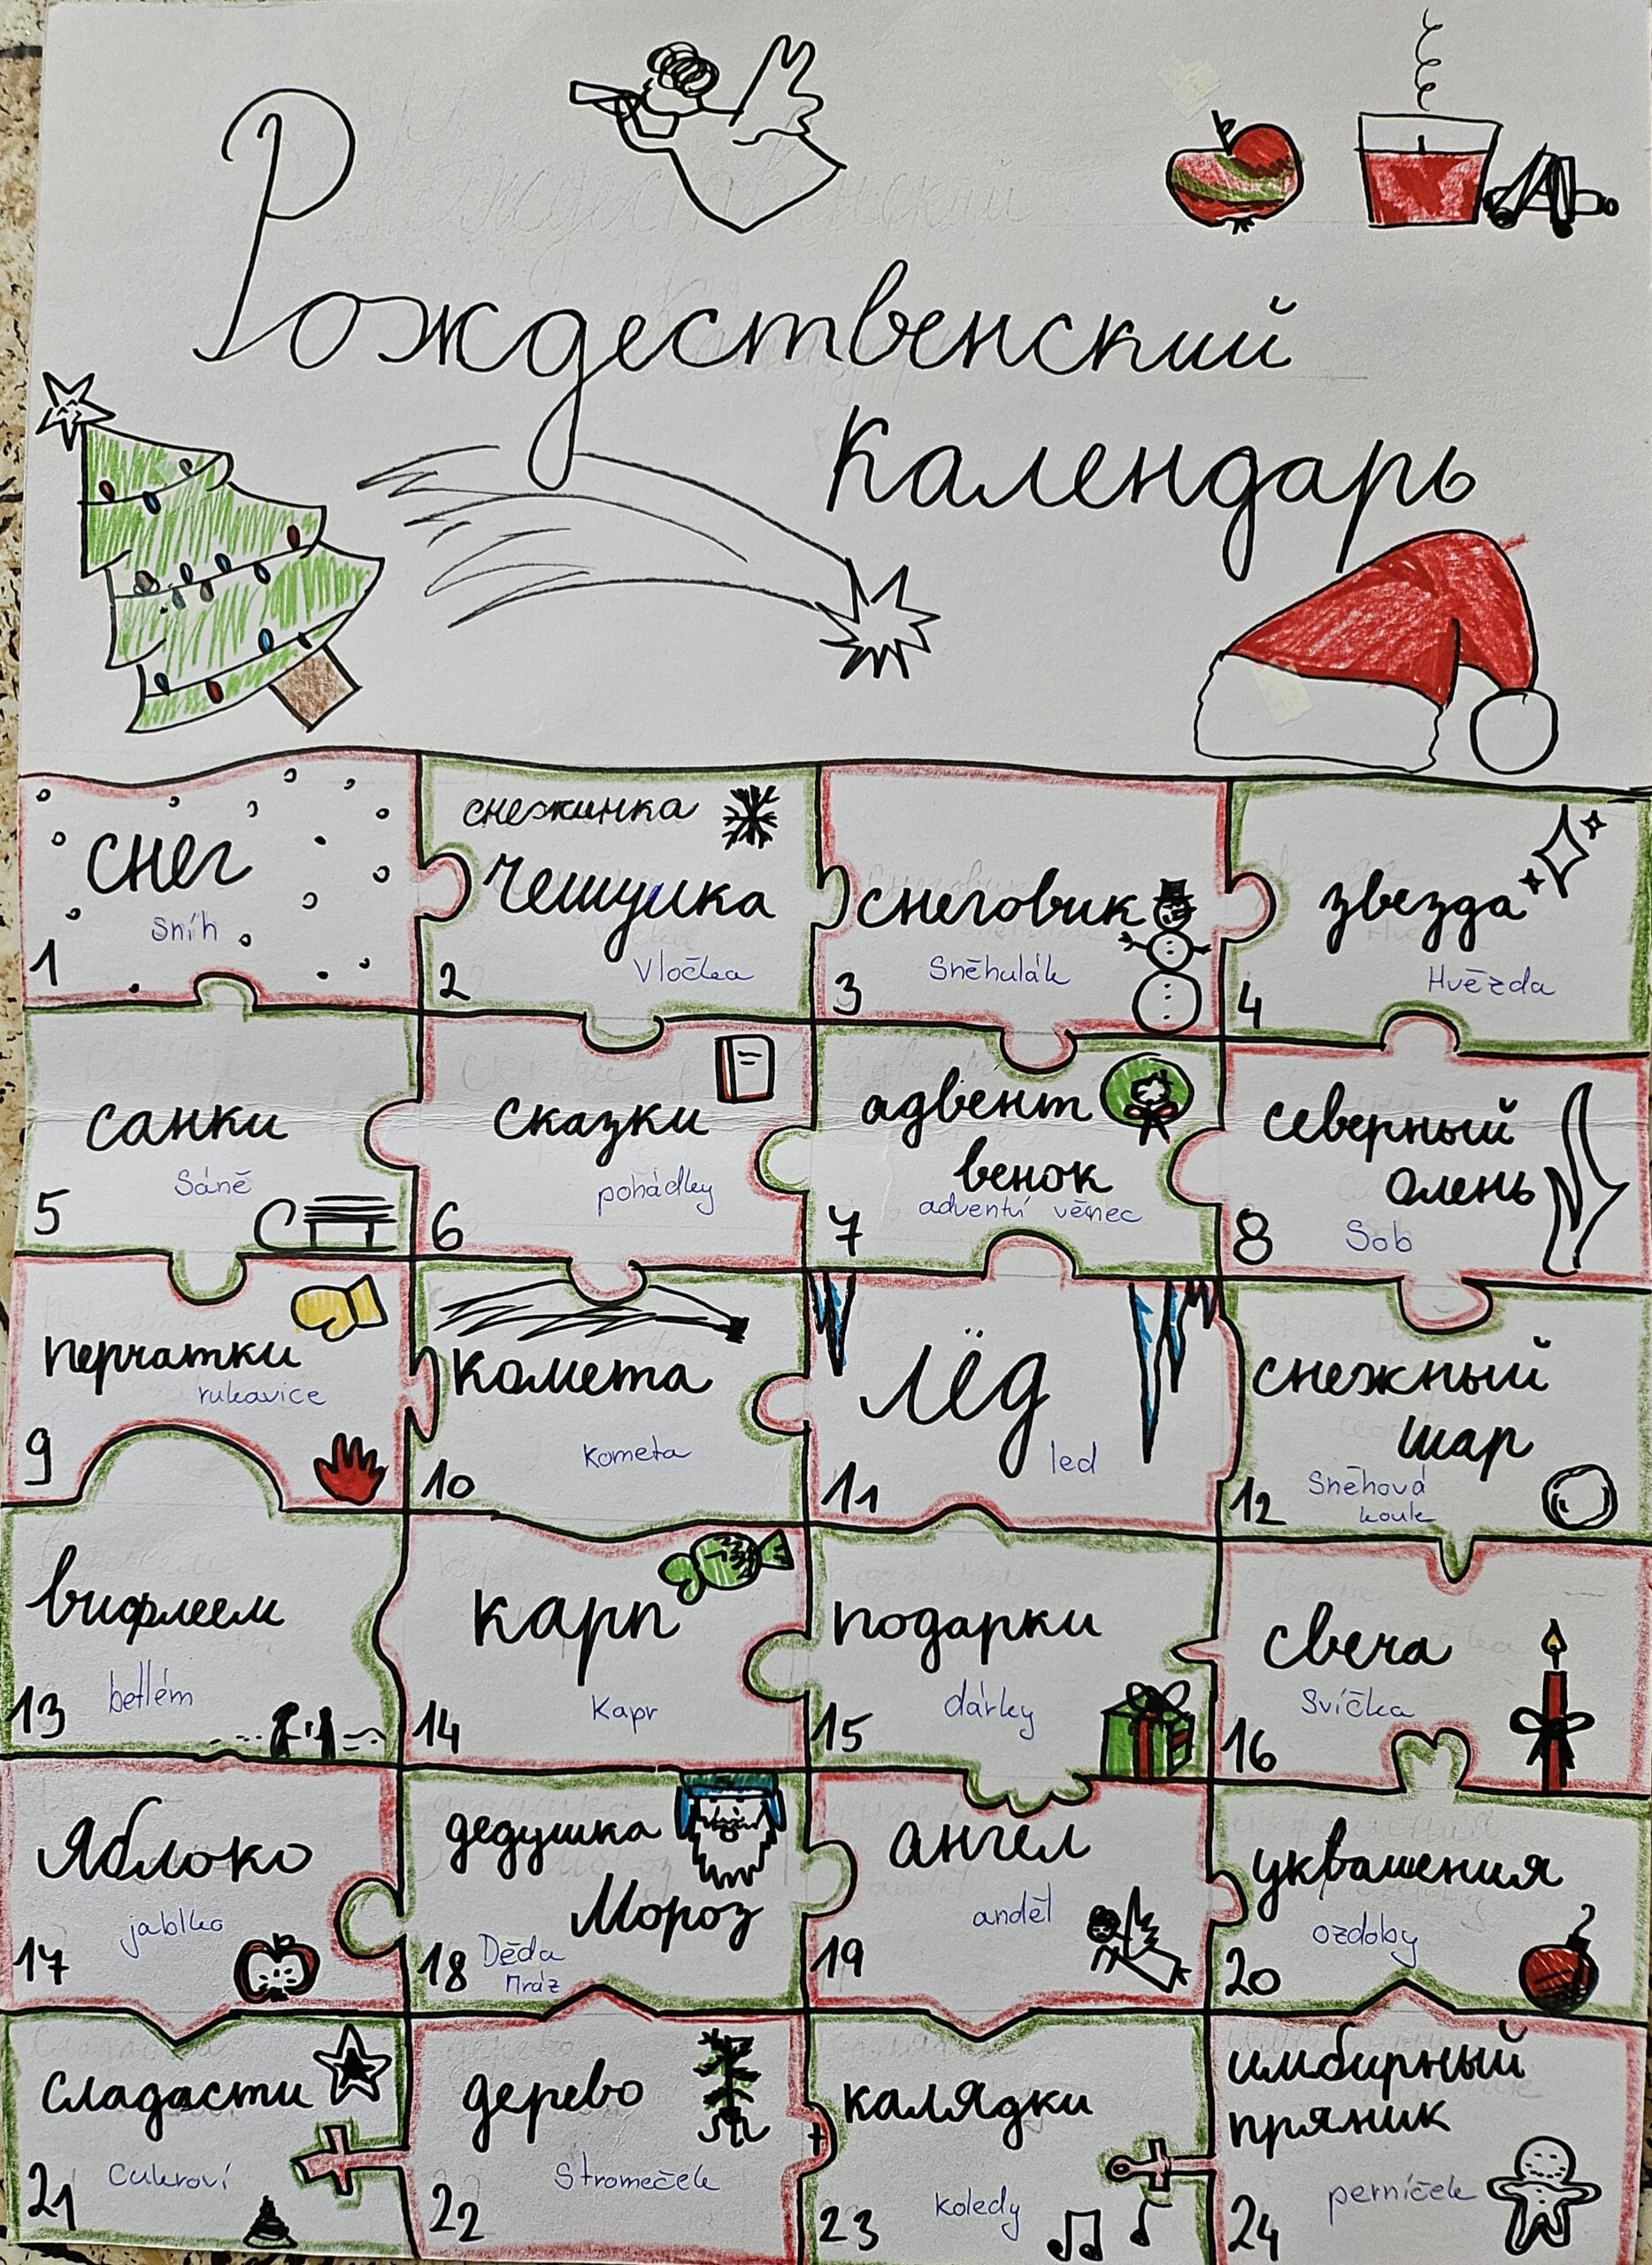 Рождественский
календарь
снег
sníh
1
снежинка
чешуйка
Vločka
2
снеговик
Sněhulák
3
звезда
Hvězda
4
санки
Sáně
5
сказки
pohádky
6
адвент
венок
adventní věnec
7
северный
олень
Sob
8
перчатки
rukavice
9
комета
kometa
10
лёд
led
11
снежный
шар
Sněhová
koule
12
вифлеем
betlém
13
карп
kapr
14
подарки
dárky
15
свеча
Svíčka
16
яблоко
jablko
17
дедушка
Мороз
Děda
Mráz
18
ангел
anděl
19
уквашения
ozdoby
20
сладасти
cukroví
21
дерево
Stromeček
22
калядки
koledy
23
имбирный
пряник
perníček
24